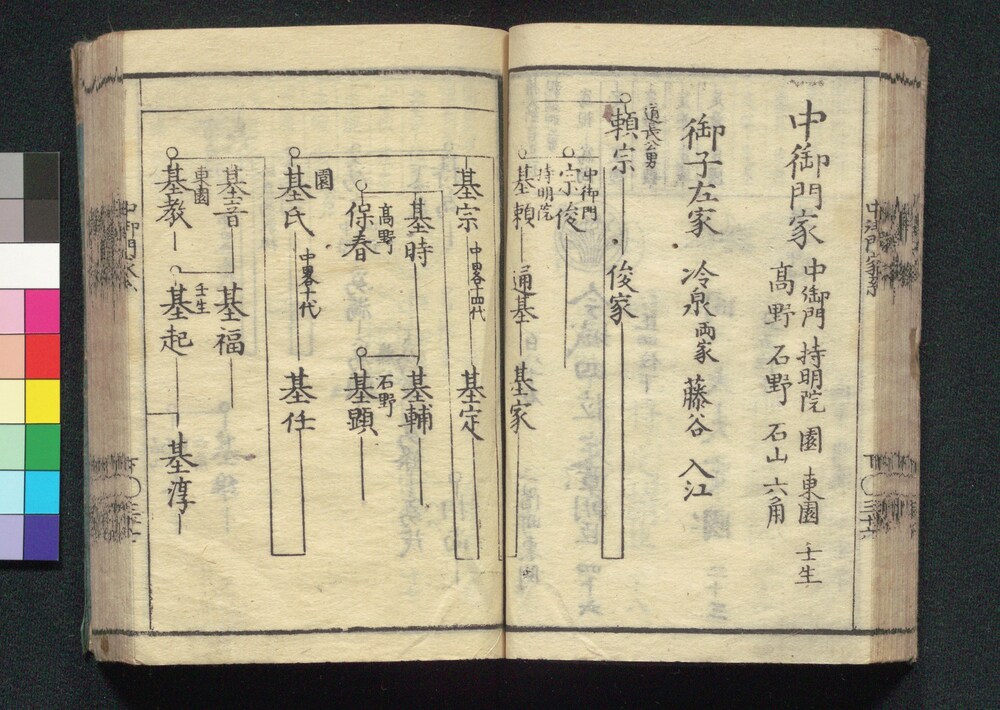 中御門家
中御門 持明院 園 東園 壬生
髙野 石野 石山 六角
御子左家 冷泉両家 藤谷 入江
道長公男
頼宗
俊家
中御門
宗俊
持明院
基頼 通基 基家
基宗 中畧十四代 基定
基時 基輔
髙野
保春 石野 基顕
園
基氏 中畧十代 基任
基音 基福
東園
基教 壬生 基起 基淳
中御門家系